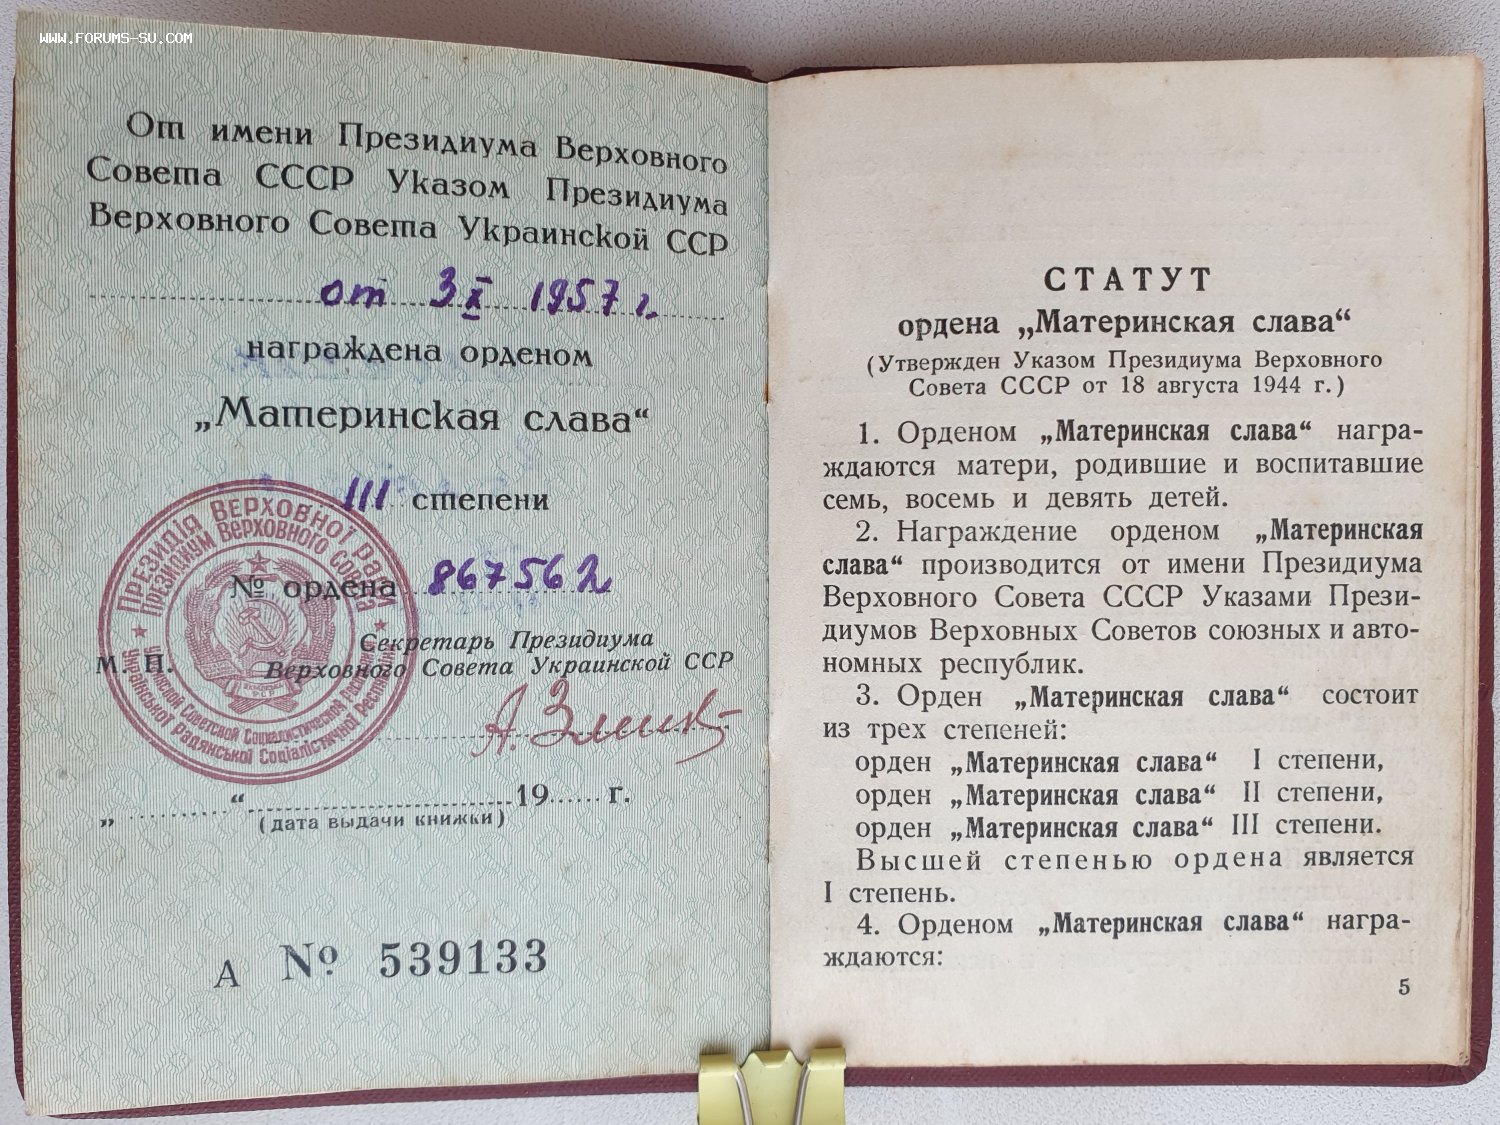 WWW.FORUMS-SU.COM
От имени Президиума Верховного
Совета СССР Указом Президиума
Верховного Совета Украинской ССР
от 3 X 1957 г.
награждена орденом
„Материнская слава“
III степени
№ ордена 867562
Секретарь Президиума
М. П. Верховного Совета Украинской ССР
„ “ 19 г.
(дата выдачи книжки)
А № 539133
Президія Верховної Ради
Української Радянської Соціалістичної Республіки
Президиум Верховного Совета
Украинской Советской Социалистической
СТАТУТ
ордена „Материнская слава“
(Утвержден Указом Президиума Верховного
Совета СССР от 18 августа 1944 г.)
1. Орденом „Материнская слава“ награ-
ждаются матери, родившие и воспитавшие
семь, восемь и девять детей.
2. Награждение орденом „Материнская
слава“ производится от имени Президиума
Верховного Совета СССР Указами Прези-
диумов Верховных Советов союзных и авто-
номных республик.
3. Орден „Материнская слава“ состоит
из трех степеней:
орден „Материнская слава“ I степени,
орден „Материнская слава“ II степени,
орден „Материнская слава“ III степени.
Высшей степенью ордена является
I степень.
4. Орденом „Материнская слава“ награ-
ждаются:
5